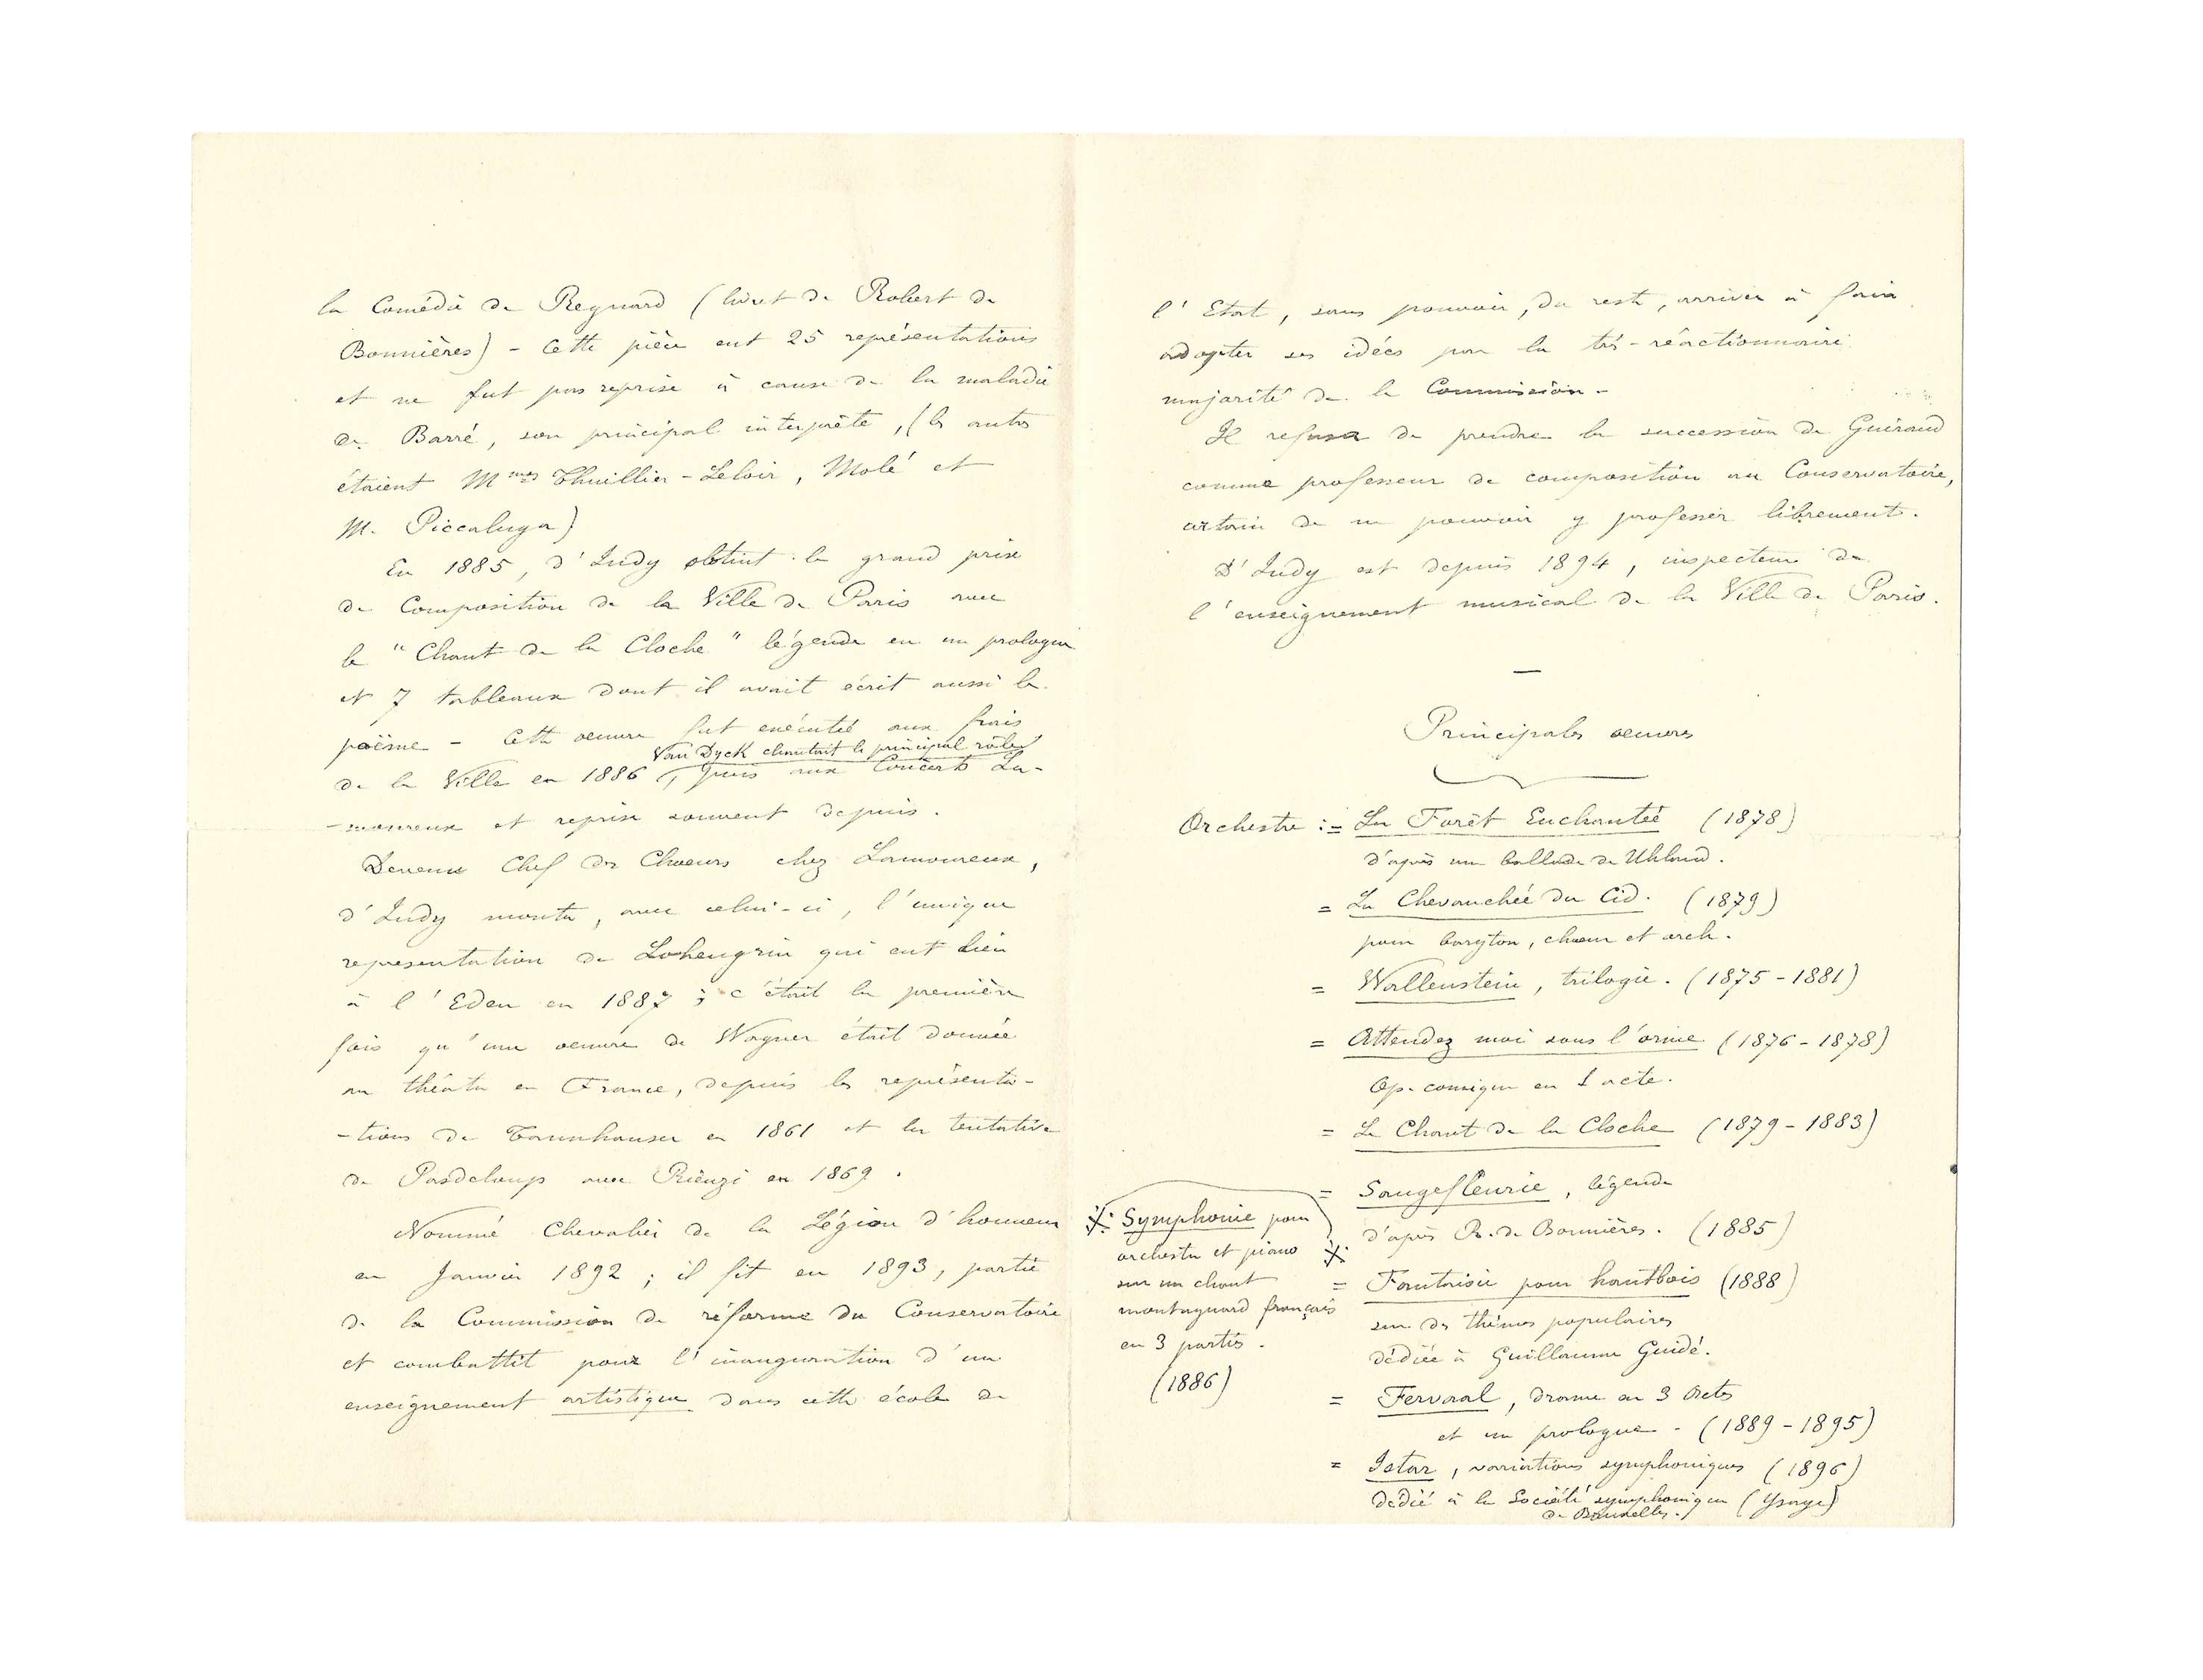 la Comédie de Regnard (livret de Robert de
Bonnières) - Cette pièce eut 25 représentations
et ne fut pas reprise à cause de la maladie
de Barré, son principal interprète, (les autres
étaient Mmes Thuillier-Leloir, Molé et
M. Piccaluga)
En 1885, d'Indy obtint le grand prix
de Composition de la Ville de Paris avec
le "Chant de la Cloche" légende en un prologue
et 7 tableaux dont il avait écrit aussi le
poëme - Cette oeuvre fut exécutée aux frais
Van Dyck chantait le principal rôle
de la Ville en 1886, puis aux Concerts La-
-moureux et reprise souvent depuis.
Devenu Chef des Choeurs chez Lamoureux,
d'Indy monta, avec celui-ci, l'unique
representation de Lohengrin qui eut lieu
à l'Eden en 1887 ; c'était la première
fois qu'une oeuvre de Wagner était donnée
au théâtre en France, depuis les représenta-
-tions de Tannhauser en 1861 et la tentative
de Pasdeloup avec Rienzi en 1869.
Nommé Chevalier de la Légion d'honneur
en Janvier 1892 ; il fit en 1893, partie
de la Commission de réforme du Conservatoire
et combattit pour l'inauguration d'un
enseignement artistique dans cette école de
l'Etat, sans pouvoir, du reste, arriver à faire
adopter ses idées par la très-réactionnaire
majorité de la Commission.
Il refusa de prendre la succession de Guiraud
comme professeur de composition au Conservatoire,
certain de ne pouvoir y professer librement.
D'Indy est depuis 1894, inspecteur de
l'enseignement musical de la Ville de Paris.
—
Principales oeuvres
Orchestre : = La Forêt Enchantée (1878)
d'après une ballade de Uhland.
= La Chevauchée du Cid. (1879)
pour baryton, choeur et orch.
= Wallenstein, trilogie. (1875-1881)
= Attendez moi sous l'orme (1876-1878)
Op. comique en 1 acte.
= Le Chant de la Cloche (1879-1883)
= Saugefleurie, légende
d'après R. de Bonnières. (1885)
Symphonie pour
orchestre et piano
sur un chant
montagnard français
en 3 parties.
(1886)
= Fantaisie pour hautbois (1888)
sur des thèmes populaires
dédiée à Guillaume Guidé.
= Fervaal, drame en 3 Actes
et un prologue - (1889-1895)
= Istar, variations symphoniques (1896)
dédié à la Société symphonique (Ysaye)
de Bruxelles.